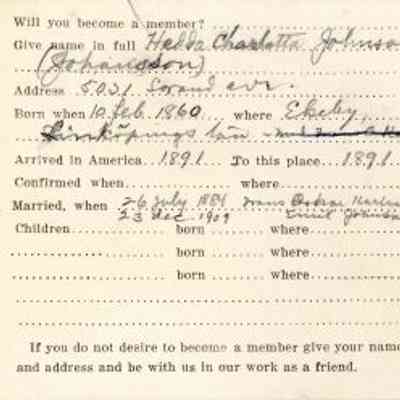 Will you become a member?
Give name in full Hedda Charlotta Johnso
(Johansson)
Address 5031 Strand ave.
Born when 10 feb. 1860 where Ekeby,
Linköpings län
Arrived in America. 1891. To this place. 1891.
Confirmed when where
Married, when 26 July 1884 Frans Oskar Karls
23 dec. 1909 Emil Johnso
Children born where
born where
born where
If you do not desire to become a member give your name
and address and be with us in our work as a friend.